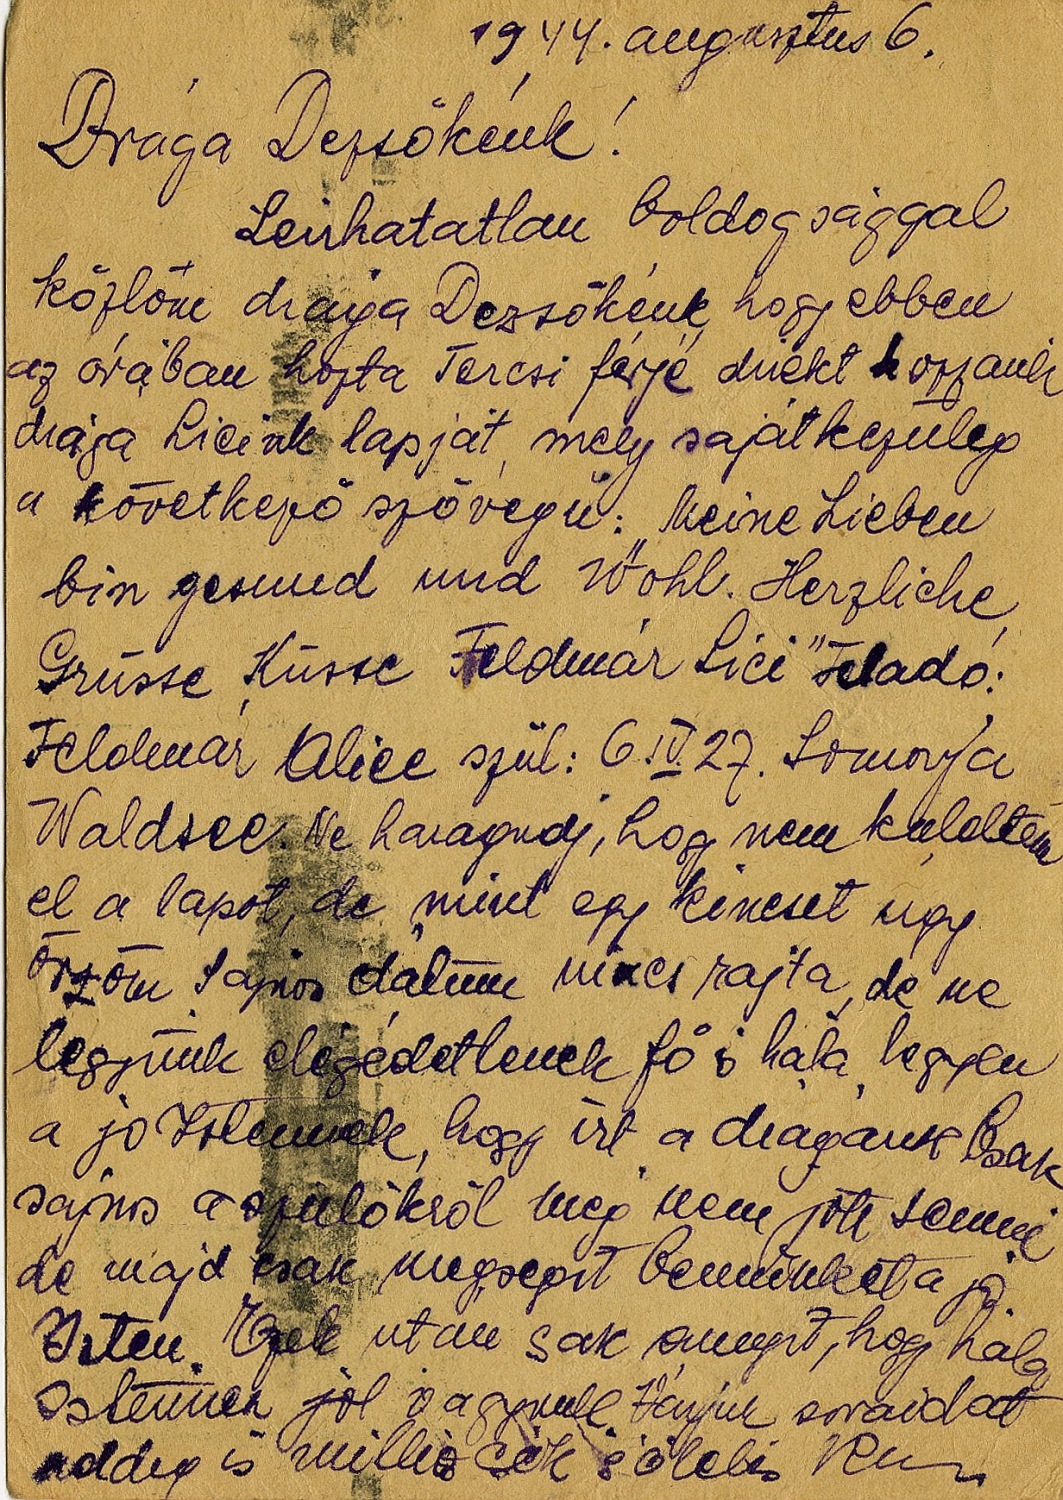 1944. augusztus 6.
Drága Dezsőkénk!
Leirhatatlan boldogsággal
közlöm drága Dezsőkénk, hogy ebben
az órában hozta Tercsi férje direkt hozzánk
drága Licink lapját, mely sajátkezüleg
a következő szövegü: „Meine Lieben
bin gesund und Wohl. Herzliche
Grüsse, Küsse Feldmár Lici" Feladó:
Feldmár Alice szül: 6.IV.27. Somorja
Waldsee. Ne haragudj, hogy nem küldtem
el a lapot, de mint egy kincset ugy
őrzöm. Sajnos dátum nincs rajta, de ne
legyünk elégedetlenek fő s hála legyen
a jo Istennek, hogy irt a drágánk. Csak
sajnos a szülőkről még nem jött semmi
de majd csak megsegit bennünket a jó
Isten. Ezek utan csak annyit, hogy hála
Istennek jól vagyunk. Várjuk soraidat
addig is millió csók s ölelés